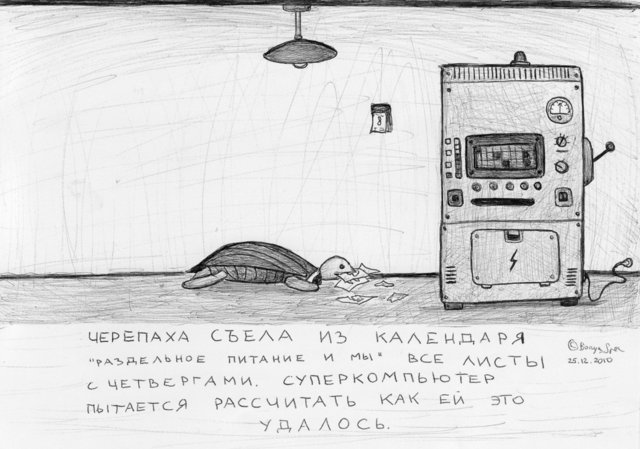 8
ЧЕРЕПАХА СЪЕЛА ИЗ КАЛЕНДАРЯ
"РАЗДЕЛЬНОЕ ПИТАНИЕ И МЫ" ВСЕ ЛИСТЫ
С ЧЕТВЕРГАМИ. СУПЕРКОМПЬЮТЕР
ПЫТАЕТСЯ РАССЧИТАТЬ КАК ЕЙ ЭТО
УДАЛОСЬ.
©
25.12.2010